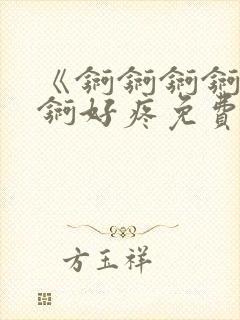 《锕锕锕锕
锕好疼免費
方玉祥